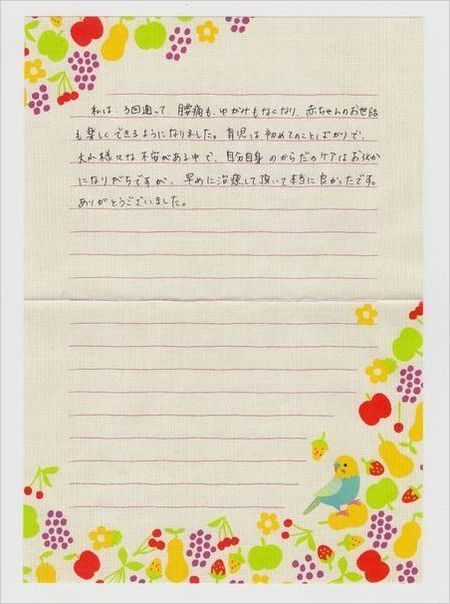 私は、3回通って、腰痛も、ゆがみもなくなり、赤ちゃんのお世話
も楽しくできるようになりました。育児は初めてのことばかりで、
様々な不安がある中で、自分自身のからだのケアはおろそか
になりがちですが、早めに治療して頂いて本当に良かったです。
ありがとうございました。